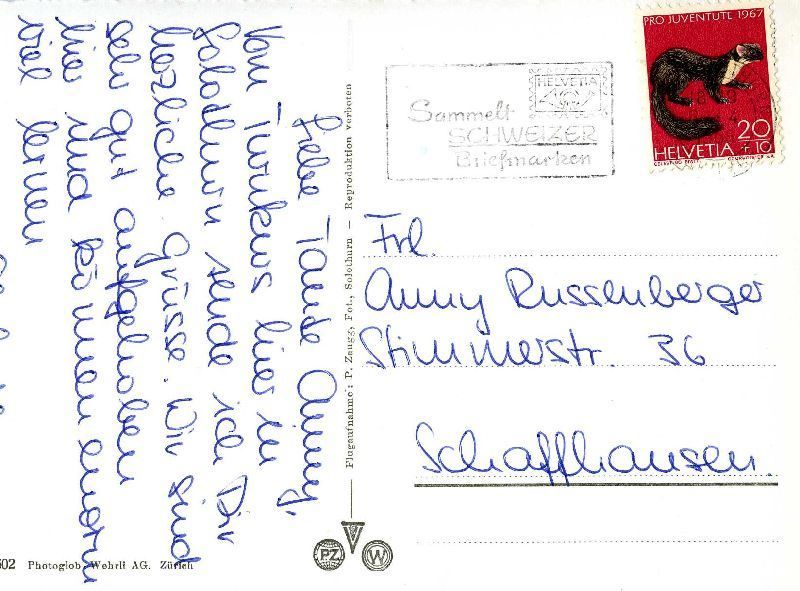 Liebe Tante Anny,
Vom Turnkurs hier in
Solothurn sende ich Dir
herzliche Grüsse. Wir sind
sehr gut aufgehoben
hier und können enorm
viel lernen
Flugaufnahme: P. Zaugg, Fot., Solothurn — Reproduktion verboten
HELVETIA
Sammelt
SCHWEIZER
Briefmarken
PRO JUVENTUTE 1967
20
+10
HELVETIA
Frl.
Anny Russenberger
Stimmerstr. 36
Schaffhausen.
PZ
W
502 Photoglob Wehrli AG. Zürich